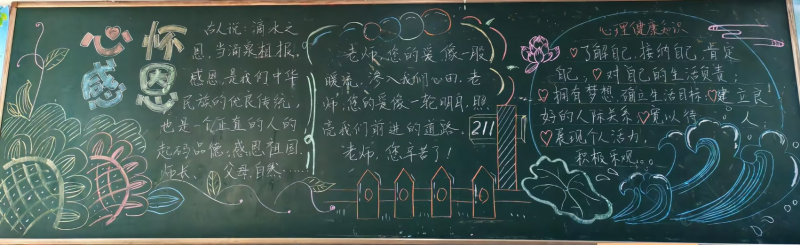 心怀
感恩
古人说：滴水之
恩，当涌泉相报。
感恩，是我们中华
民族的优良传统，
也是一个正直的人的
起码品德，感恩祖国
师长、父母、自然……
老师，您的爱像一股
暖流，渗入我们心田，老
师，您的爱像一轮明月，照
亮我们前进的道路。
老师，您辛苦了！
211
心理健康知识
♡了解自己，接纳自己，肯定
自己，♡对自己的生活负责；
♡拥有梦想，确立生活目标；♡建立良
好的人际关系；♡宽以待人，
♡展现个人活力，
积极乐观。。。